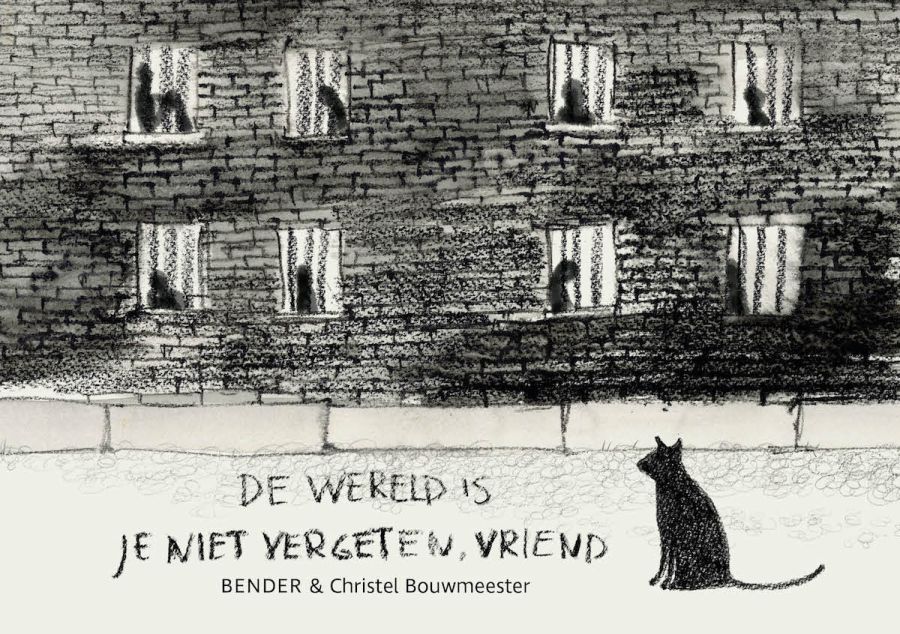 DE WERELD IS
JE NIET VERGETEN, VRIEND
BENDER & Christel Bouwmeester